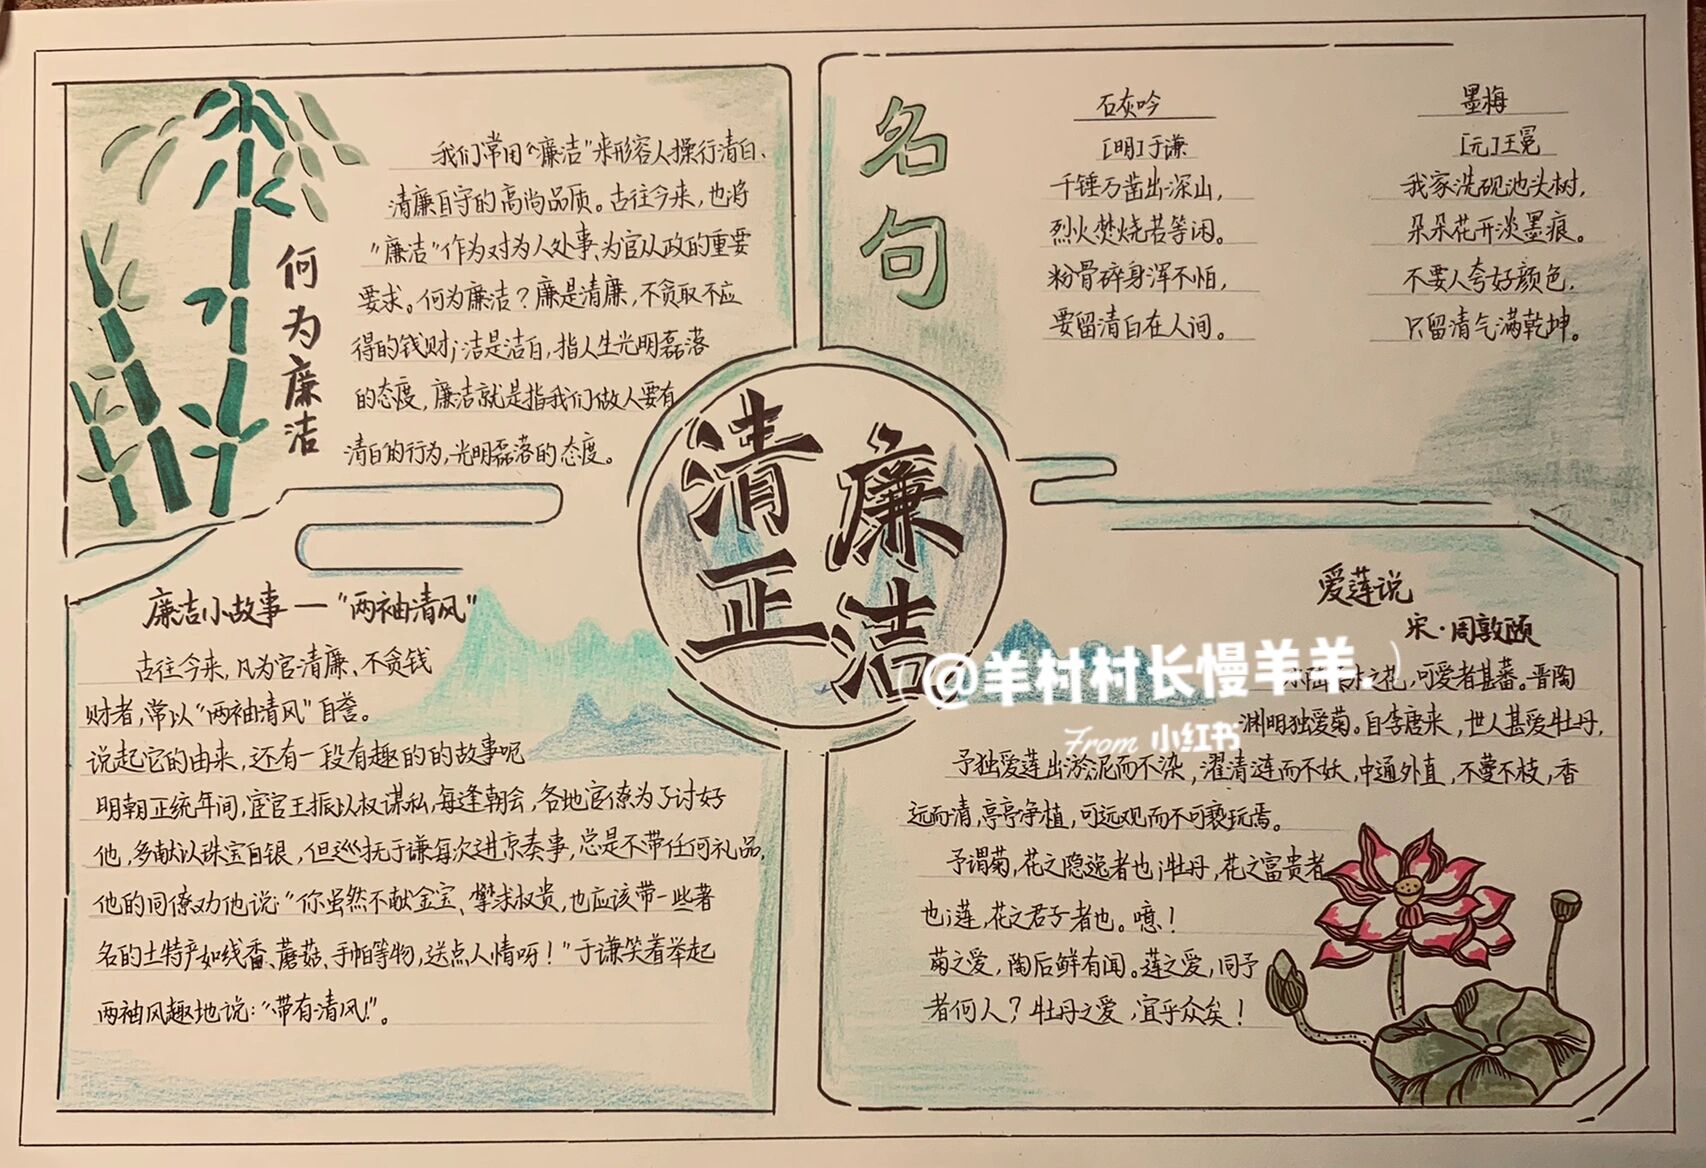 何为廉洁
我们常用“廉洁”来形容人操行清白、
清廉自守的高尚品质。古往今来,也将
“廉洁”作为对为人处事、为官从政的重要
要求。何为廉洁?廉是清廉,不贪取不应
得的钱财;洁是洁白,指人生光明磊落
的态度,廉洁就是指我们做人要有
清白的行为,光明磊落的态度。
名句
石灰吟
[明]于谦
千锤万凿出深山,
烈火焚烧若等闲。
粉骨碎身浑不怕,
要留清白在人间。
墨梅
[元]王冕
我家洗砚池头树,
朵朵花开淡墨痕。
不要人夸好颜色,
只留清气满乾坤。
清正
廉洁
廉洁小故事—“两袖清风”
古往今来,凡为官清廉、不贪钱
财者,常以“两袖清风”自誉。
说起它的由来,还有一段有趣的的故事呢
明朝正统年间,宦官王振以权谋私,每逢朝会,各地官僚为了讨好
他,多献以珠宝白银,但巡抚于谦每次进京奏事,总是不带任何礼品,
他的同僚劝他说:“你虽然不献金宝、攀求权贵,也应该带一些著
名的土特产如线香、蘑菇、手帕等物,送点人情呀!”于谦笑着举起
两袖风趣地说:“带有清风!”。
爱莲说
宋·周敦颐
之花,可爱者甚蕃。晋陶
渊明独爱菊。自李唐来,世人甚爱牡丹,
予独爱莲出淤泥而不染,濯清涟而不妖,中通外直,不蔓不枝,香
远而清,亭亭净植,可远观而不可亵玩焉。
予谓菊,花之隐逸者也;牡丹,花之富贵者
也;莲,花之君子者也。噫!
菊之爱,陶后鲜有闻。莲之爱,同予
者何人?牡丹之爱,宜乎众矣!
@羊村村长慢羊羊.
From 小红书